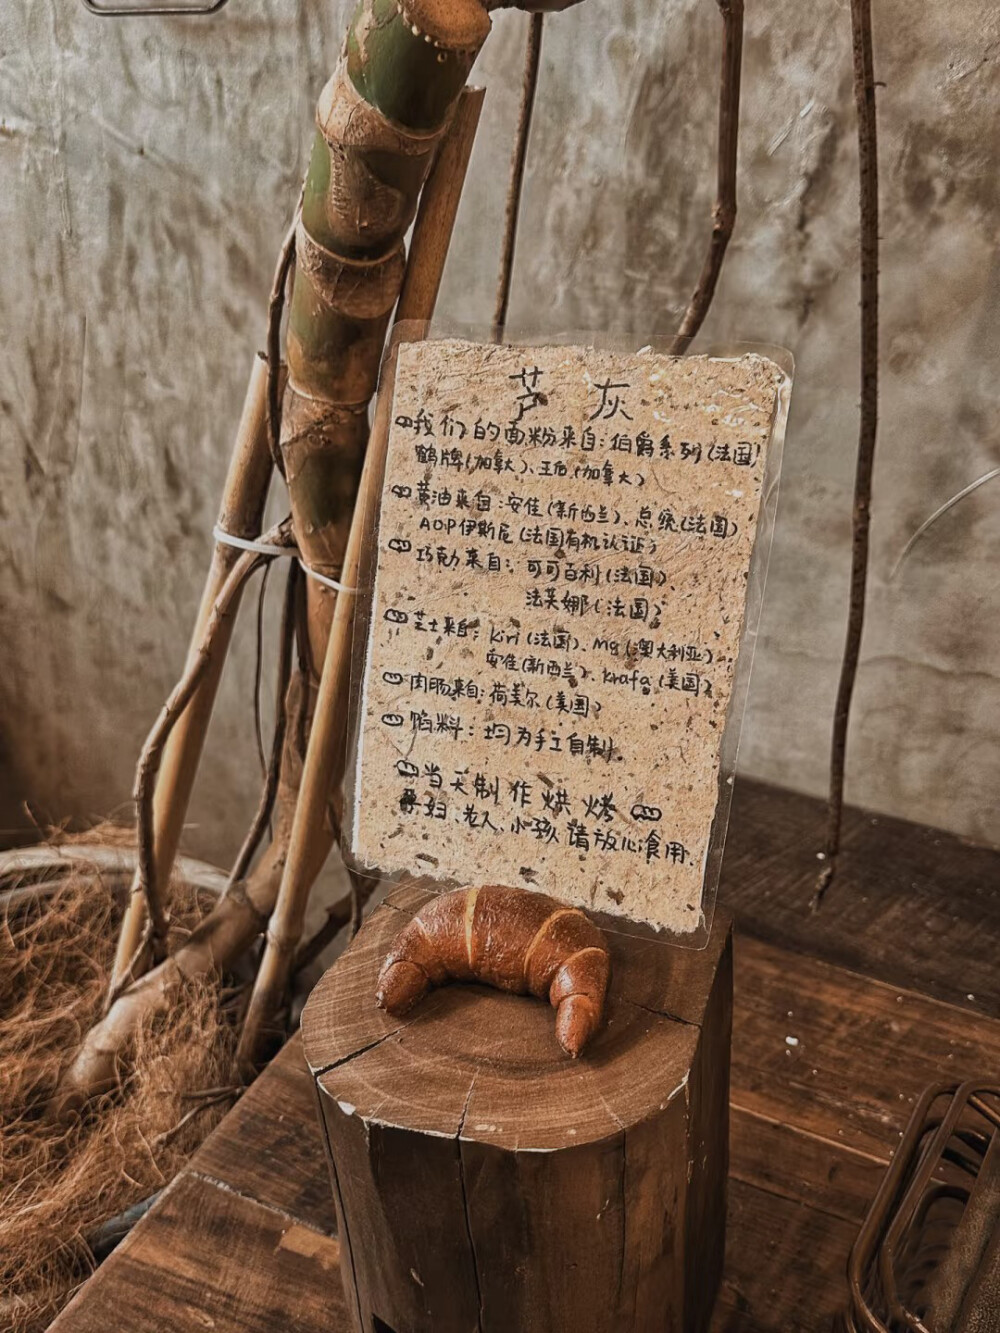 芦 灰
我们的面粉来自:伯爵系列(法国)
鹤牌(加拿大)、王后(加拿大)
黄油来自:安佳(新西兰)、总统(法国)
AOP伊斯尼(法国有机认证)
巧克力来自:可可百利(法国)
法芙娜(法国)
芝士来自:kiri(法国)、MG(澳大利亚)
安佳(新西兰)、krafa(美国)
肉肠来自:荷美尔(美国)
馅料:均为手工自制
当天制作烘烤
孕妇、老人、小孩请放心食用.